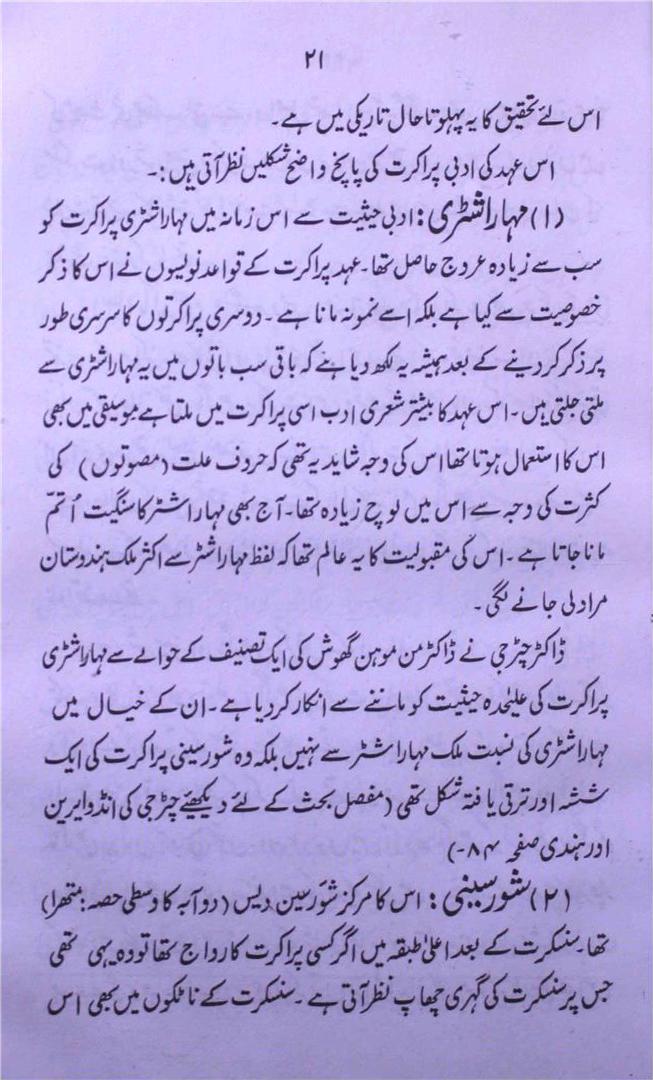 ۲۱
اس لئے تحقیق کا یہ پہلو تا حال تاریکی میں ہے۔
اس عہد کی ادبی پراکرت کی پانچ واضح شکلیں نظر آتی ہیں:۔
(۱) مہاراشٹری: ادبی حیثیت سے اس زمانہ میں مہاراشٹری پراکرت کو
سب سے زیادہ عروج حاصل تھا۔ عہد پراکرت کے قواعد نویسوں نے اس کا ذکر
خصوصیت سے کیا ہے بلکہ اسے نمونہ مانا ہے۔ دوسری پراکرتوں کا سرسری طور
پر ذکر کر دینے کے بعد ہمیشہ یہ لکھ دیا ہے کہ باقی سب باتوں میں یہ مہاراشٹری سے
ملتی جلتی ہیں۔ اس عہد کا بیشتر شعری ادب اسی پراکرت میں ملتا ہے موسیقی میں بھی
اس کا استعمال ہوتا تھا اس کی وجہ شاید یہ تھی کہ حروف علت (مصوتوں) کی
کثرت کی وجہ سے اس میں لوچ زیادہ تھا۔ آج بھی مہاراشٹر کا سنگیت اُتم
مانا جاتا ہے۔ اس کی مقبولیت کا یہ عالم تھا کہ لفظ مہاراشٹر سے اکثر ملک ہندوستان
مراد لی جانے لگی۔
ڈاکٹر چٹرجی نے ڈاکٹر من موہن گھوش کی ایک تصنیف کے حوالے سے مہاراشٹری
پراکرت کی علیٰحدہ حیثیت کو ماننے سے انکار کر دیا ہے۔ ان کے خیال میں
مہاراشٹری کی نسبت ملک مہاراشٹر سے نہیں بلکہ وہ شورسینی پراکرت کی ایک
شستہ اور ترقی یافتہ شکل تھی (مفصل بحث کے لئے دیکھئے چٹرجی کی انڈو ایرین
اور ہندی صفحہ ۸۴-)
(۲) شورسینی: اس کا مرکز شورسین دیس (دوآبہ کا وسطی حصہ: متھرا)
تھا۔ سنسکرت کے بعد اعلیٰ طبقہ میں اگر کسی پراکرت کا رواج تھا تو وہ یہی تھی
جس پر سنسکرت کی گہری چھاپ نظر آتی ہے۔ سنسکرت کے ناٹکوں میں بھی اس